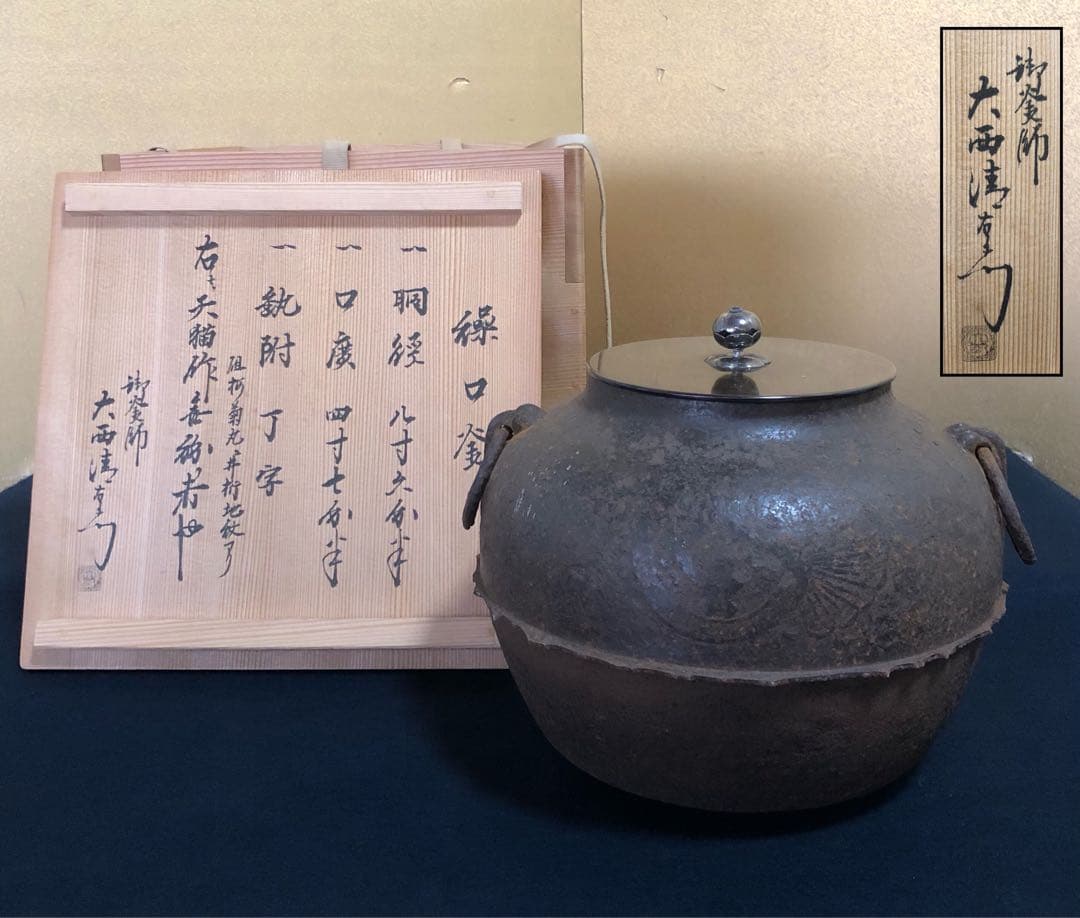 繰口釜
一 胴徑 八寸六分半
一 口廣 四寸七分半
一 執附 丁字
菊丸ニ井桁地紋アリ
右ハ天猫作無紛者也
御釜師
大西清右衛門
御釜師
大西清右衛門